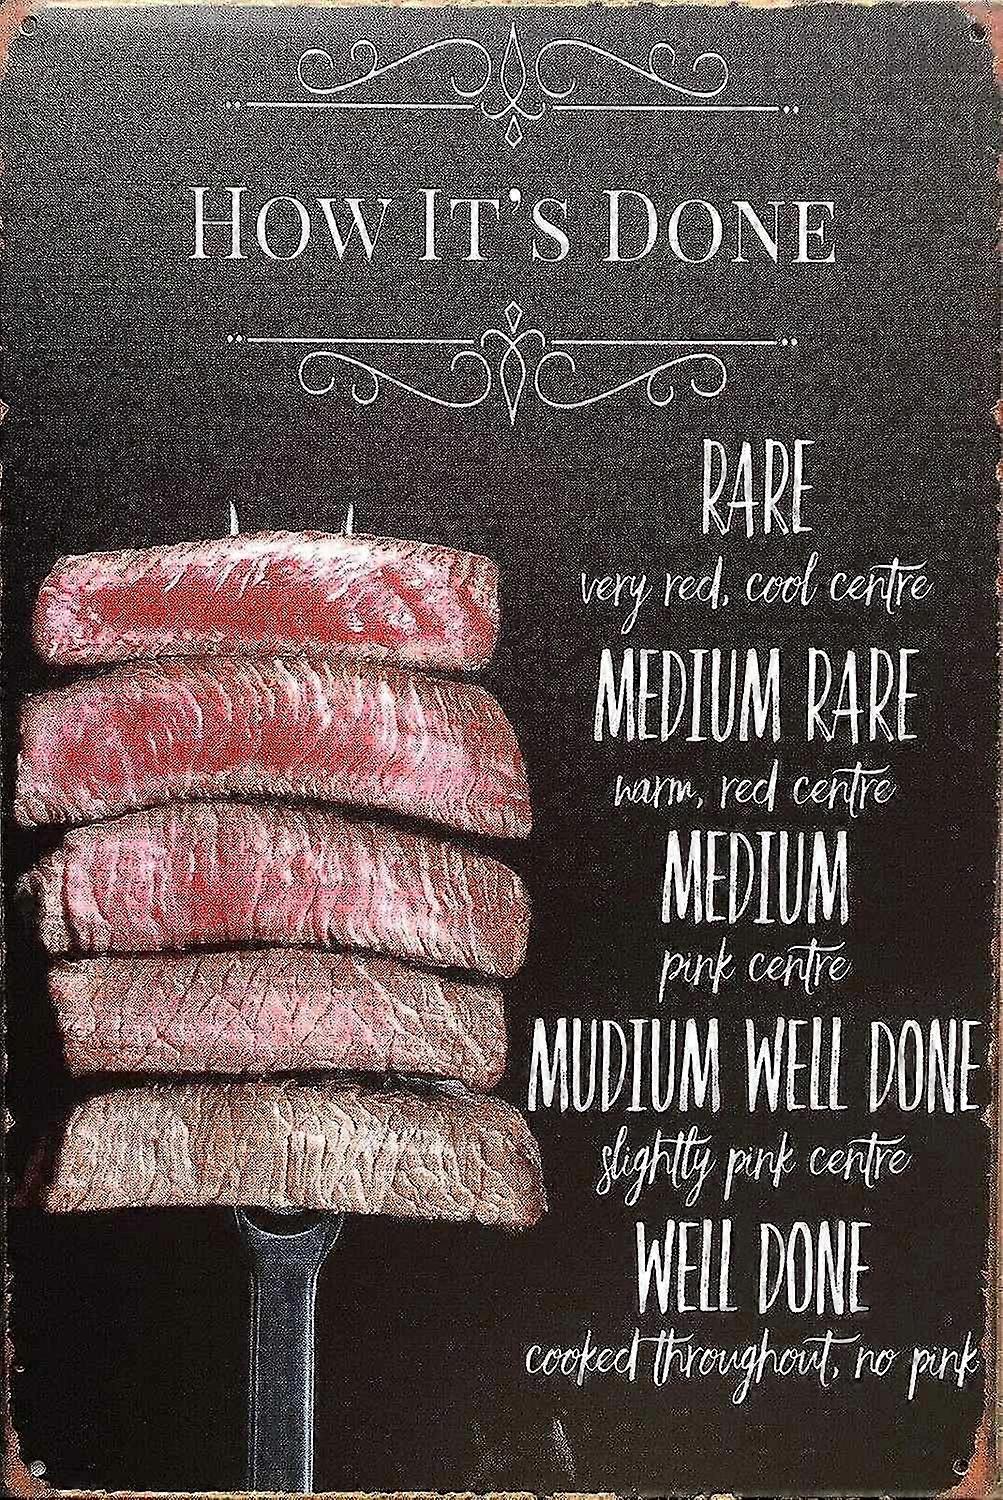 How It's Done
RARE
very red, cool centre
MEDIUM RARE
warm, red centre
MEDIUM
pink centre
MUDIUM WELL DONE
slightly pink centre
WELL DONE
cooked throughout, no pink